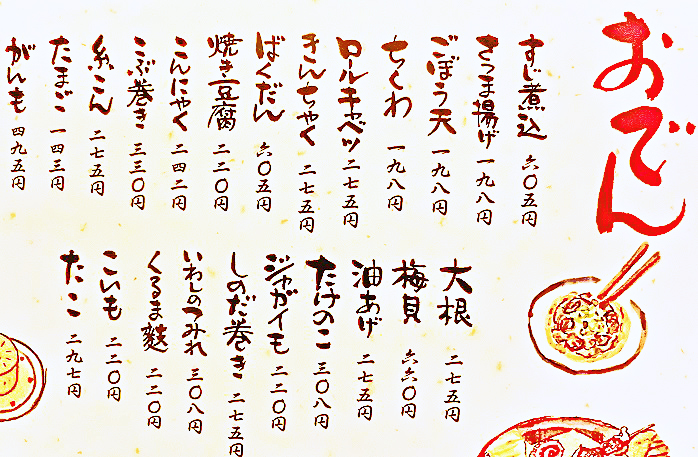 おでん
すじ煮込 六〇五円
さつま揚げ 一九八円
ごぼう天 一九八円
ちくわ 一九八円
ロールキャベツ 二七五円
きんちゃく 二七五円
ばくだん 六〇五円
焼き豆腐 二二〇円
こんにゃく 二四二円
こぶ巻き 三三〇円
糸こん 二七五円
たまご 一四三円
がんも 四九五円
大根 二七五円
梅貝 六六〇円
油あげ 二七五円
たけのこ 三〇八円
ジャガイモ 二二〇円
しのだ巻き 二七五円
いわしのつみれ 三〇八円
くるま麩 二二〇円
こいも 二二〇円
たこ 二九七円